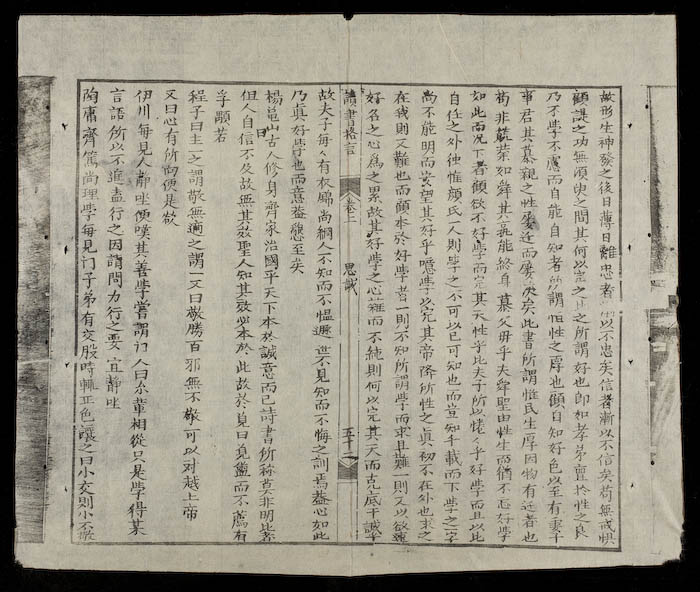 故形生神發之後日薄日離忠者以不忠矣信者漸以不信矣苟無戒惧
顧諟之功無須臾之間其何以完之此之所謂好也即如孝弟亶於性之良
乃不學不慮而自能自知者所謂恒性之厚也顧自知好色以至有妻子
事君其慕親之性屡近而屡决矣此書所謂惟民生厚因物有迁者也
苟非如舜其孰能終身慕父母乎夫舜聖由性生而猶不忘好學
如此而况下者顧欲不好學而完其天性乎此夫子所以惓々乎好學而且以此
自任之外独惟顔氏一人則學之不可以已可知也而豈知千載而下學之字
尚不能明而妄望其好乎噫學以完其帝降所性之真初不在外也求之
在我則又難也而顧本於好學者一則不知所謂學而求且難一則又以欲速
好名之心為之累故其好學之心雜而不純則何以完其天而克底于誠乎
讀書格言 卷二 思誠 五十二
故夫子每々有衣錦尚絅人不知而不愠遯世不見知而不悔之訓焉益心如此
乃真好學也而意益懇至矣
楊龜山曰古人修身齊家治國平天下本於誠意而已詩書所称莫非明此者
但人自信不及故無其效聖人知其效必本於此故於易曰盥而不薦有
孚顒若
程子曰主一之謂敬無適之謂一又曰敬勝百邪無不敬可以对越上帝
又曰心有所向便是欲
伊川每見人靜坐便嘆其善學嘗謂门人曰尔輩相從只是學得某
言語所以不進盍行之因請問力行之要曰宜靜坐
陶庸齊篤尚理學每見门子弟有交股時輒正色讓之曰小交則小不敬